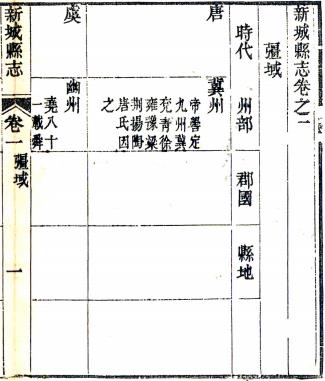 新城縣志卷之二
疆域
時代 州部 郡國 縣地
唐 冀州
帝嚳定
九州冀
兗青徐
雍豫梁
荆揚陶
唐氏因
之
虞 幽州
堯八十
一載舜
新城縣志 卷一 疆域 一